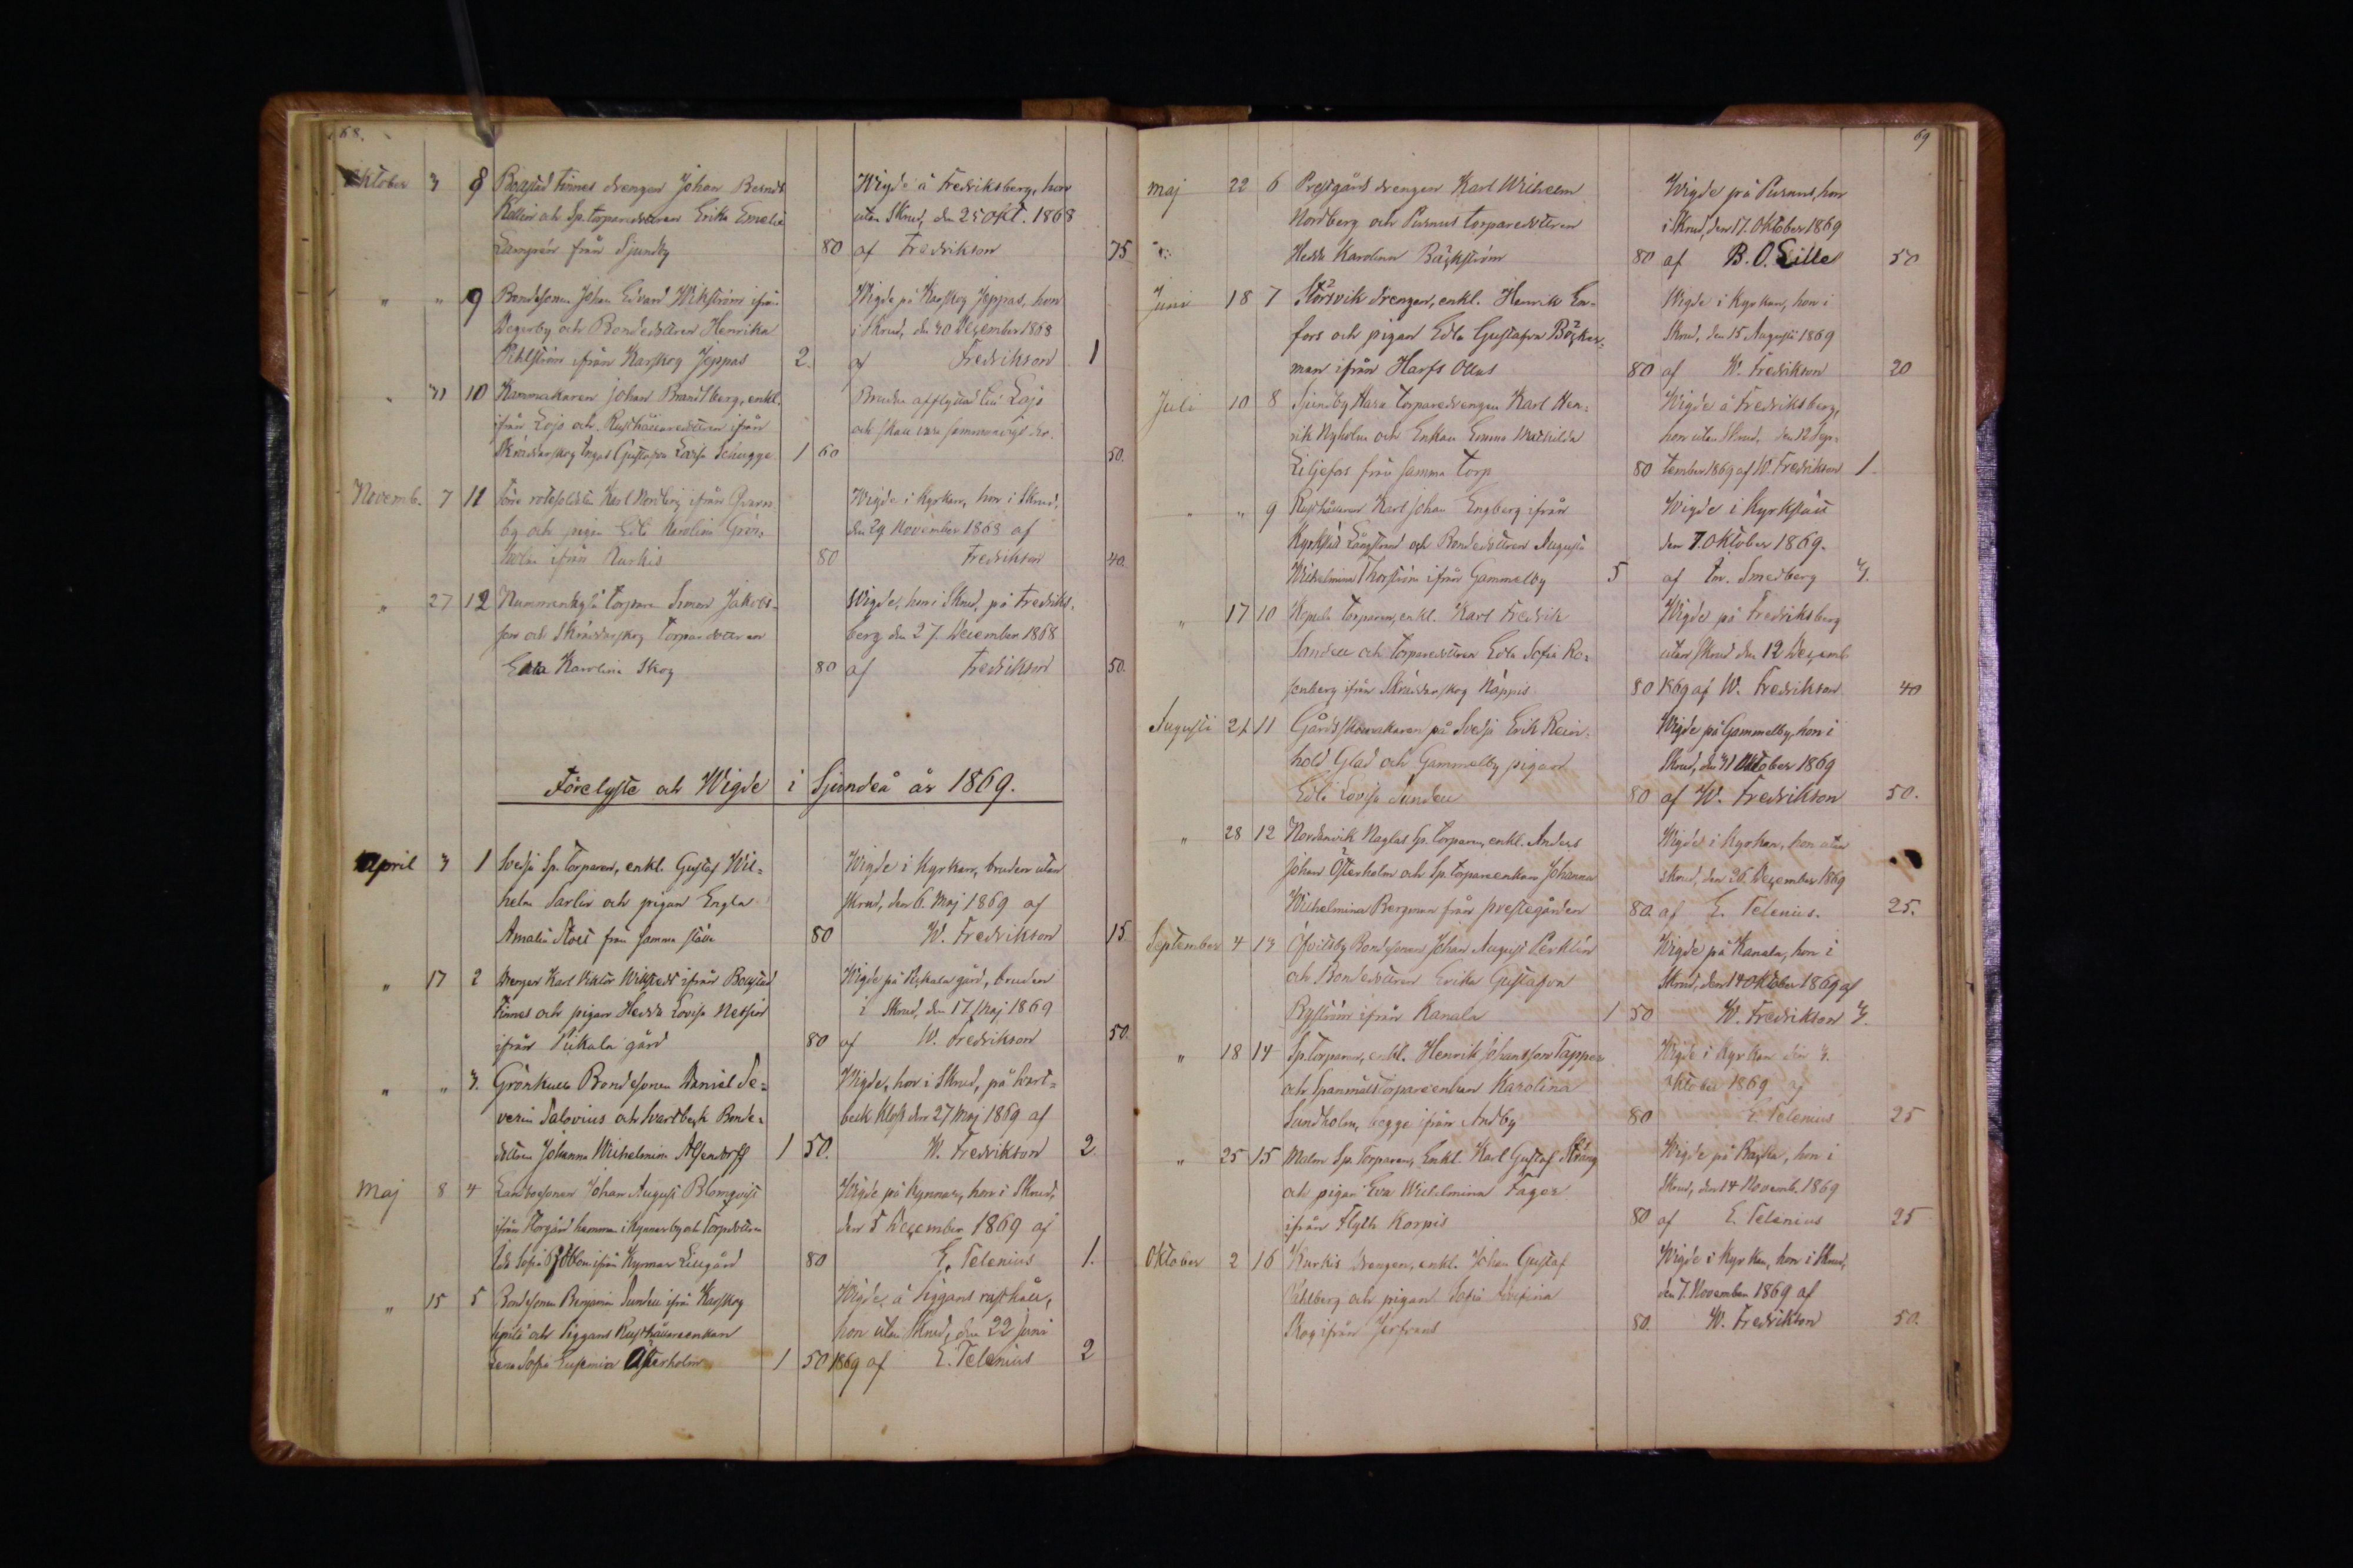 68.
Oktober 3 8 Båtstad Finnes drengen Johan Bernds Wigde å Fredriksberg, hon
Kollin och Sp. torparedottren Erika Emelie utan Skrud, den 25 Okt. 1868
från Sjundby 80 af Fredrikson 75
" " 9 Bondesonen Johan Edvard Wikström ifrån Wigde på Karskog Jeppas, hon
Degerby och Bondedottren Henrika i Skrud, den 30 December 1868
ifrån Karskog Jeppas 2. af Fredrikson 1
" 31 10 Kammakaren Johan Brandtberg, enkl. Bruden afflyttad till Lojo
ifrån Lojo och Rusthållaredottren ifrån och skall vara sammanvigd der.
Skräddarskog Gustafva Lovisa 1 60 50.
Novemb. 7 11 Förre rotesoldaten Karl Nordberg ifrån Qvarn Wigde i Kyrkan, hon i Skrud,
by och pigan Edla Karolina Grön den 29 November 1868 af
holm ifrån Kurkis 80 Fredrikson 40.
" 27 12 torparen Simon Jakobs- Wigde, hon i Skrud, på Fredriks-
son och Skräddarskog Torparedottren berg den 27 December 1868
Karolina Skog 80 af Fredrikson 50.
Förelyste och Wigde i Sjundeå år 1869.
April 3 1 Svedja Sp. Torparen, enkl. Gustaf Wil- Wigde i Kyrkan, bruden utan
helm Sarlin och pigan Engla skrud, den 6. Maj 1869 af
Amalia från samma ställe 80 W. Fredrikson 15.
" 17 2 Drengen Karl Viktor Wikstedt ifrån Båtstad Wigde på Pikala gård, bruden
Finnes och pigan Hedda Lovisa i Skrud, den 17 Maj 1869
ifrån Pikala gård 80 af W. Fredrikson 50.
" " 3. Grönkulla Bondesonen Daniel Se- Wigde, hon i Skrud, på Svart-
verin Salovius och Svartbeck Bonde- beck Klos den 27 Maj 1869 af
dottren Johanna Wilhelmina Alsendorff 1 50. W. Fredrikson 2.
Maj 8 4 Landbosonen Johan August Blomqvist Wigde på Kynnar, hon i Skrud,
ifrån Storgård hemman i Kynnarby och Torpdottren den 5 December 1869 af
Ida Sofia ifrån Kynnar Lillgård 80 E. Telenius 1.
" 15 5 Bondesonen Benjamin Sundell ifrån Karskog Wigde å Siggans rusthåll,
Sipilä och Siggans Rusthållareenkan hon utan Skrud, den 22 Juni
Lena Sofia Eufemia Österholm 1 50 1869 af E. Telenius 2
69
Maj 22 6 Prestgårds drengen Karl Wilhelm Wigde på Purnus, hon
Nordberg och Purnus torparedottren i Skrud, den 17. Oktober 1869
Hedda Karolina Bäckström 80 af B. O. Lille 50
Juni 18 7 Störsvik drengen, enkl. Henrik En- Wigde i Kyrkan, hon i
fors och pigan Edla Gustafva Böcker- Skrud, den 15 Augusti 1869
man ifrån Harfs Ollas 80 af W. Fredrikson 20
Juli 10 8 Sjundby Hara torparedrengen Karl Hen- Wigde å Fredriksberg,
rik Nyholm och Enkan Emma Mathilda hon utan Skrud, den 12 Sep-
Liljefors från samma torp 80 tember 1869 af W. Fredrikson 1.
" " 9 Rusthållaren Karl Johan Engberg ifrån Wigde i Kyrkslätt
Kyrkslätt Långstrand och Bondedottren Augusta den 7. Oktober 1869.
Wilhelmina Thorström ifrån Gammelby 5 af Smedberg 3.
" 17 10 Kopula torparen, enkl. Karl Fredrik Wigde på Fredriksberg
Sandell och torparedottren Edla Sofia Ro- utan skrud den 12 Decemb.
senberg ifrån Skräddarskog Näppis 80 1869 af W. Fredrikson 40
Augusti 21 11 Gårdsskomakaren på Svedja Erik Rein- Wigde på Gammelby, hon i
hold Glad och Gammelby pigan Skrud, den 31 Oktober 1869
Edla Lovisa Sundell 80 af W. Fredrikson 50.
" 28 12 Nordanvik Naglas Sp. torparen, enkl. Anders Wigde i Kyrkan, hon utan
Johan Österholm och Sp. torpareenkan Johanna Skrud, den 26. December 1869
Wilhelmina Bergman från prestegården 80. af E. Telenius. 25.
September 4 13 Öfvitsby Bondesonen Johan August Perklén Wigde på Kanala, hon i
och Bondedottren Erika Gustafva Skrud, den 14 Oktober 1869 af
Byström ifrån Kanala 1 50 W. Fredrikson 3.
" 18 14 Sp. Torparen, enkl. Henrik Johansson Tapper Wigde i Kyrkan den 3.
och Spanmålstorpareenkan Karolina Oktober 1869 af
Sundholm, begge ifrån Andby 80 E. Telenius 25
" 25 15 Malm Sp. Torparen, Enkl. Karl Gustaf Sträng Wigde på Backa, hon i
och pigan Eva Wilhelmina Fager Skrud, den 14 Novemb. 1869
ifrån Flyth Korpis 80 af E. Telenius 25
Oktober 2 16 Kurkis drengen, enkl. Johan Gustaf Wigde i Kyrkan, hon i Skrud,
Vahlberg och pigan Sofia Josefina den 7. November 1869 af
Skog ifrån Jerfvans 80. W. Fredrikson 50.